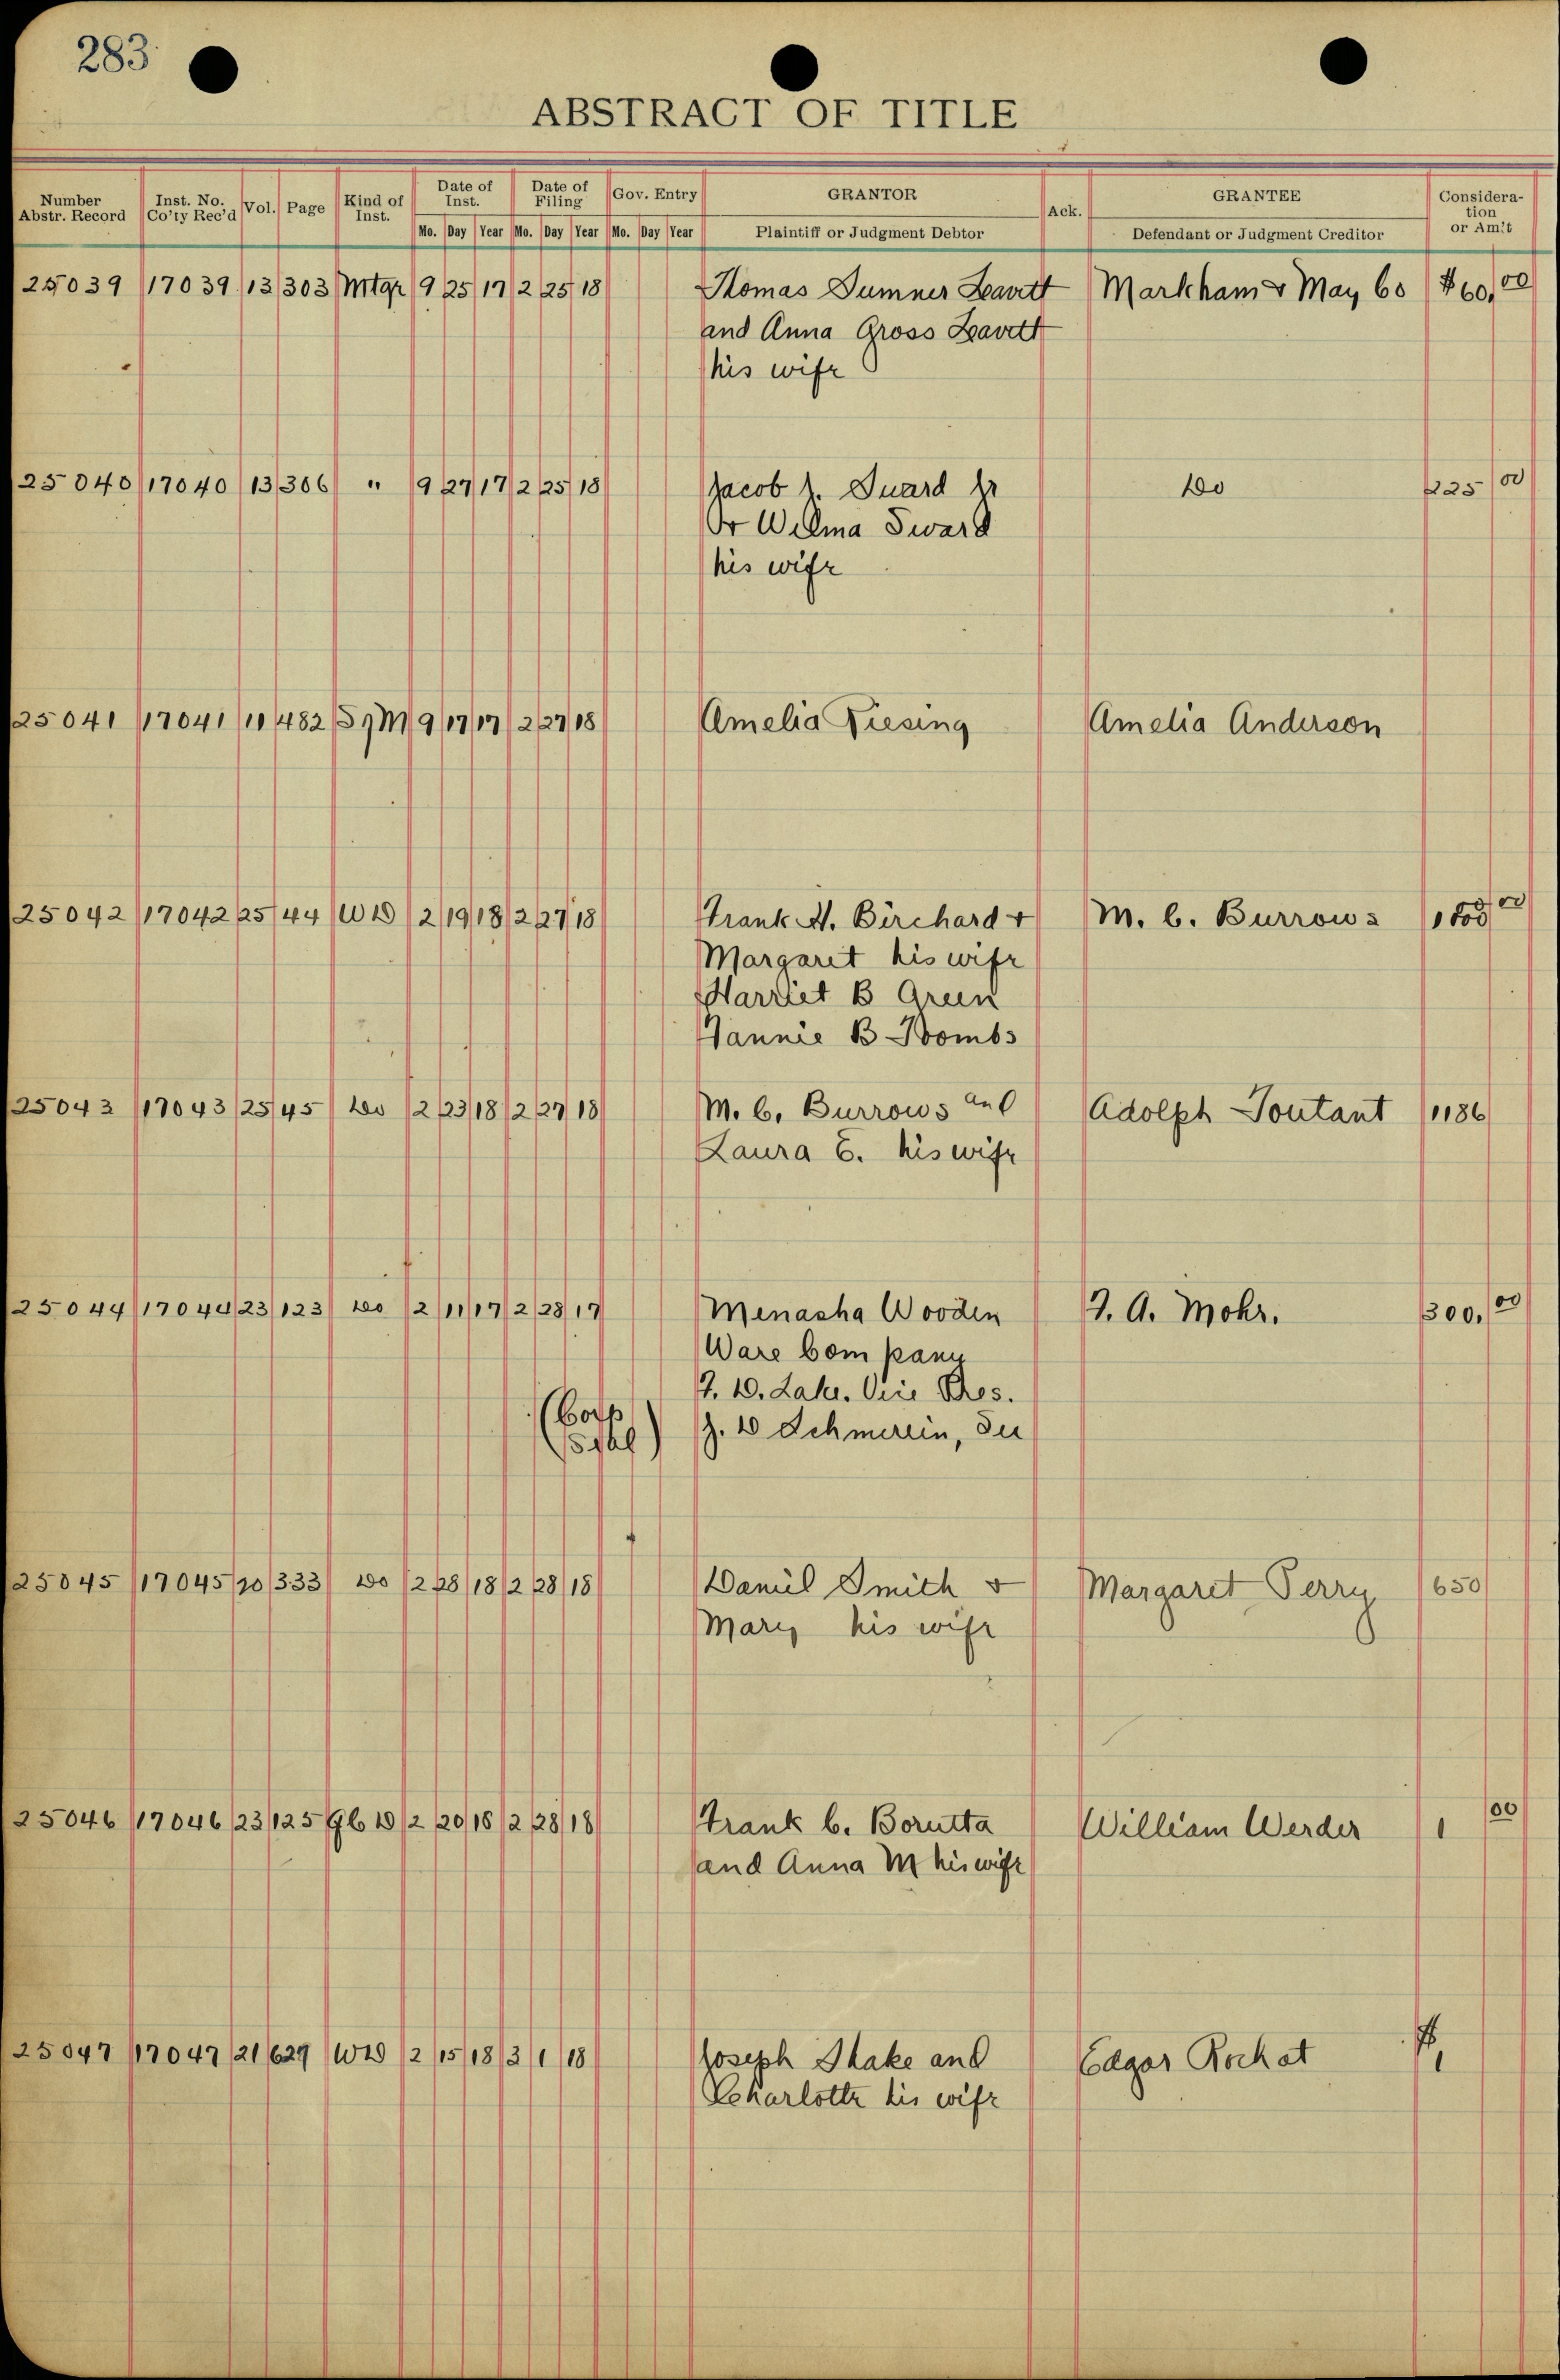 283
ABSTRACT OF TITLE
Number Abstr. Record Inst. No. Co'ty Rec'd Vol. Page Kind of Inst. Date of Inst. Date of Filing Gov. Entry GRANTOR Ack. GRANTEE Consideration or Am't
Mo. Day Year Mo. Day Year Mo. Day Year Plaintiff or Judgment Debtor Defendant or Judgment Creditor
25039 17039 13 303 Mtge 9 25 17 2 25 18 Thomas Sumner Leavitt Markham & May Co $60,00
and Anna Gross Leavitt
his wife
25040 17040 13 306 " 9 27 17 2 25 18 Jacob Jr Do 225 00
Or Wilma Sward
his wife
25041 17041 11 482 9 17 17 2 27 18 Amelia Amelia Anderson
25042 17042 25 44 WD 2 19 18 2 27 18 Frank H. Birchard + M. C. Burrows
Margaret his wife
Harriet B Green
Fannie B
25043 17043 25 45 Do 2 23 18 2 27 18 M. C. Burrows and Adolph Toutant 1186
Laura E. his wife
25044 17044 23 123 Do 2 11 17 2 28 17 Menasha Wooden F. A. Mohr. 300,00
Ware Company
F. D. Lake. Vice Pres.
(Corp
Seal) J. D Schmerein, Sec
25045 17045 20 333 Do 2 28 18 2 28 18 Daniel Smith & Margaret Perry 650
Mary his wife
25046 17046 23 125 QCD 2 20 18 2 28 18 Frank C. Borutta William Werder 1 00
and Anna M his wife
25047 17047 21 629 WD 2 15 18 3 1 18 Joseph Shake and Edgar Rochat $1
Charlotte his wife